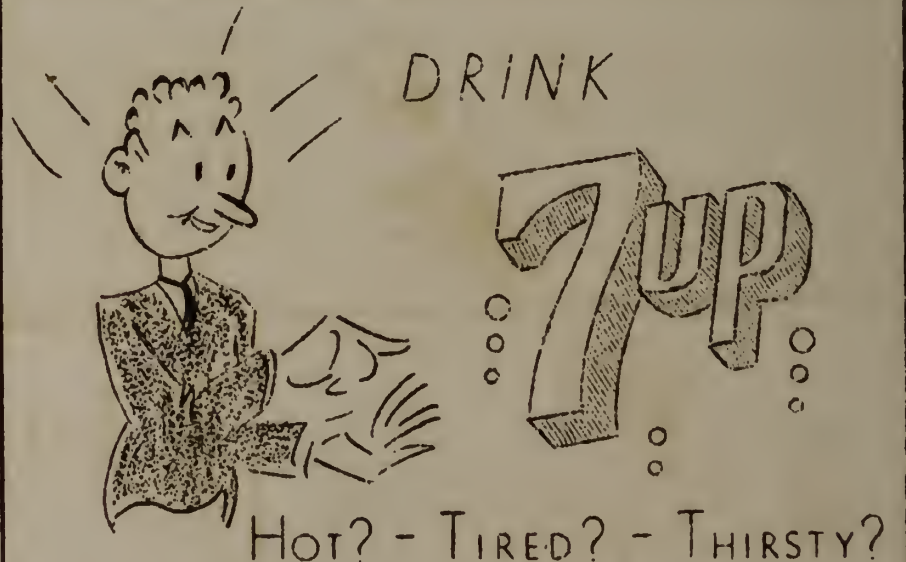 DRINK
7up
HOT? - TIRED? - THIRSTY?